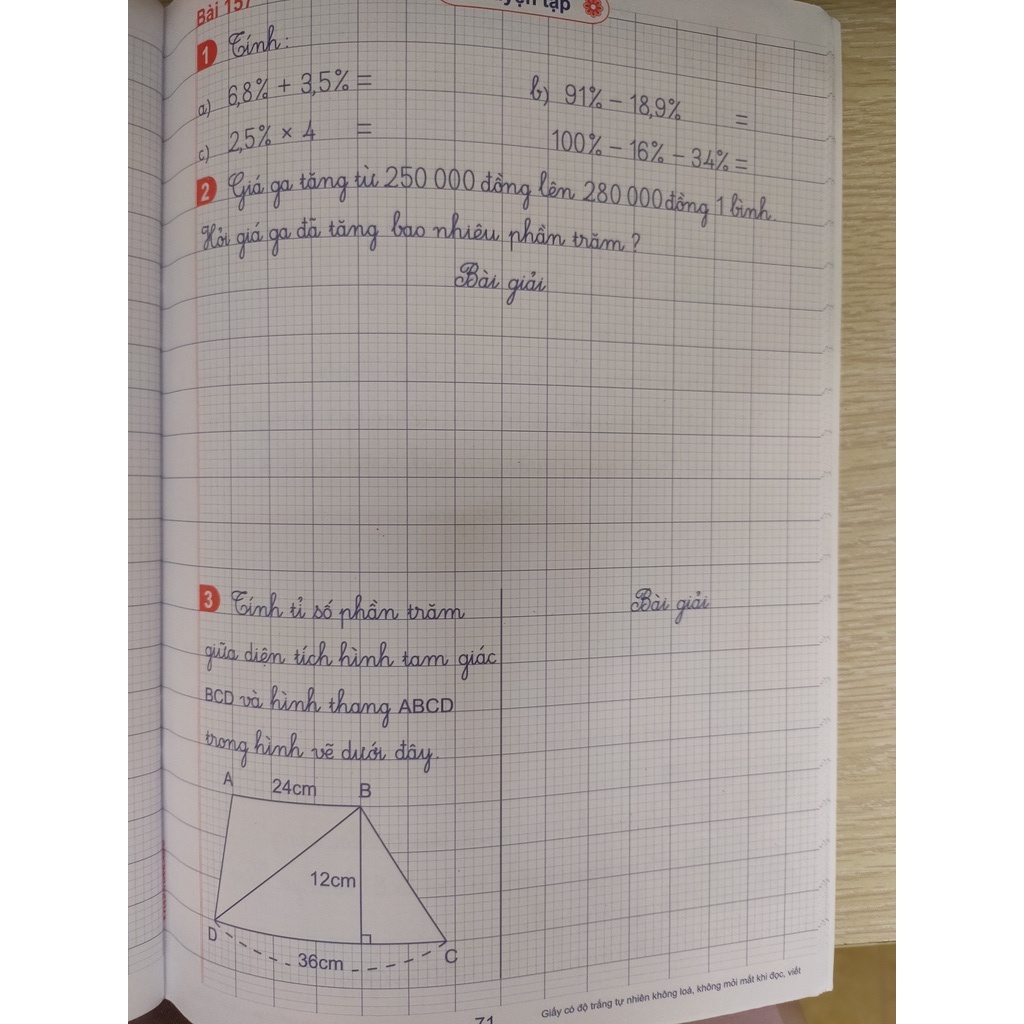 Bài 157
tập
1 Tính:
a) 6,8% + 3,5% =
b) 91% - 18,9% =
c) 2,5% × 4 =
100% - 16% - 34% =
2 Giá ga tăng từ 250 000 đồng lên 280 000 đồng 1 bình.
Hỏi giá ga đã tăng bao nhiêu phần trăm?
Bài giải
3 Tính tỉ số phần trăm
giữa diện tích hình tam giác
BCD và hình thang ABCD
trong hình vẽ dưới đây.
Bài giải
A 24cm B
12cm
D 36cm C
71
Giấy có độ trắng tự nhiên không loá, không mỏi mắt khi đọc, viết